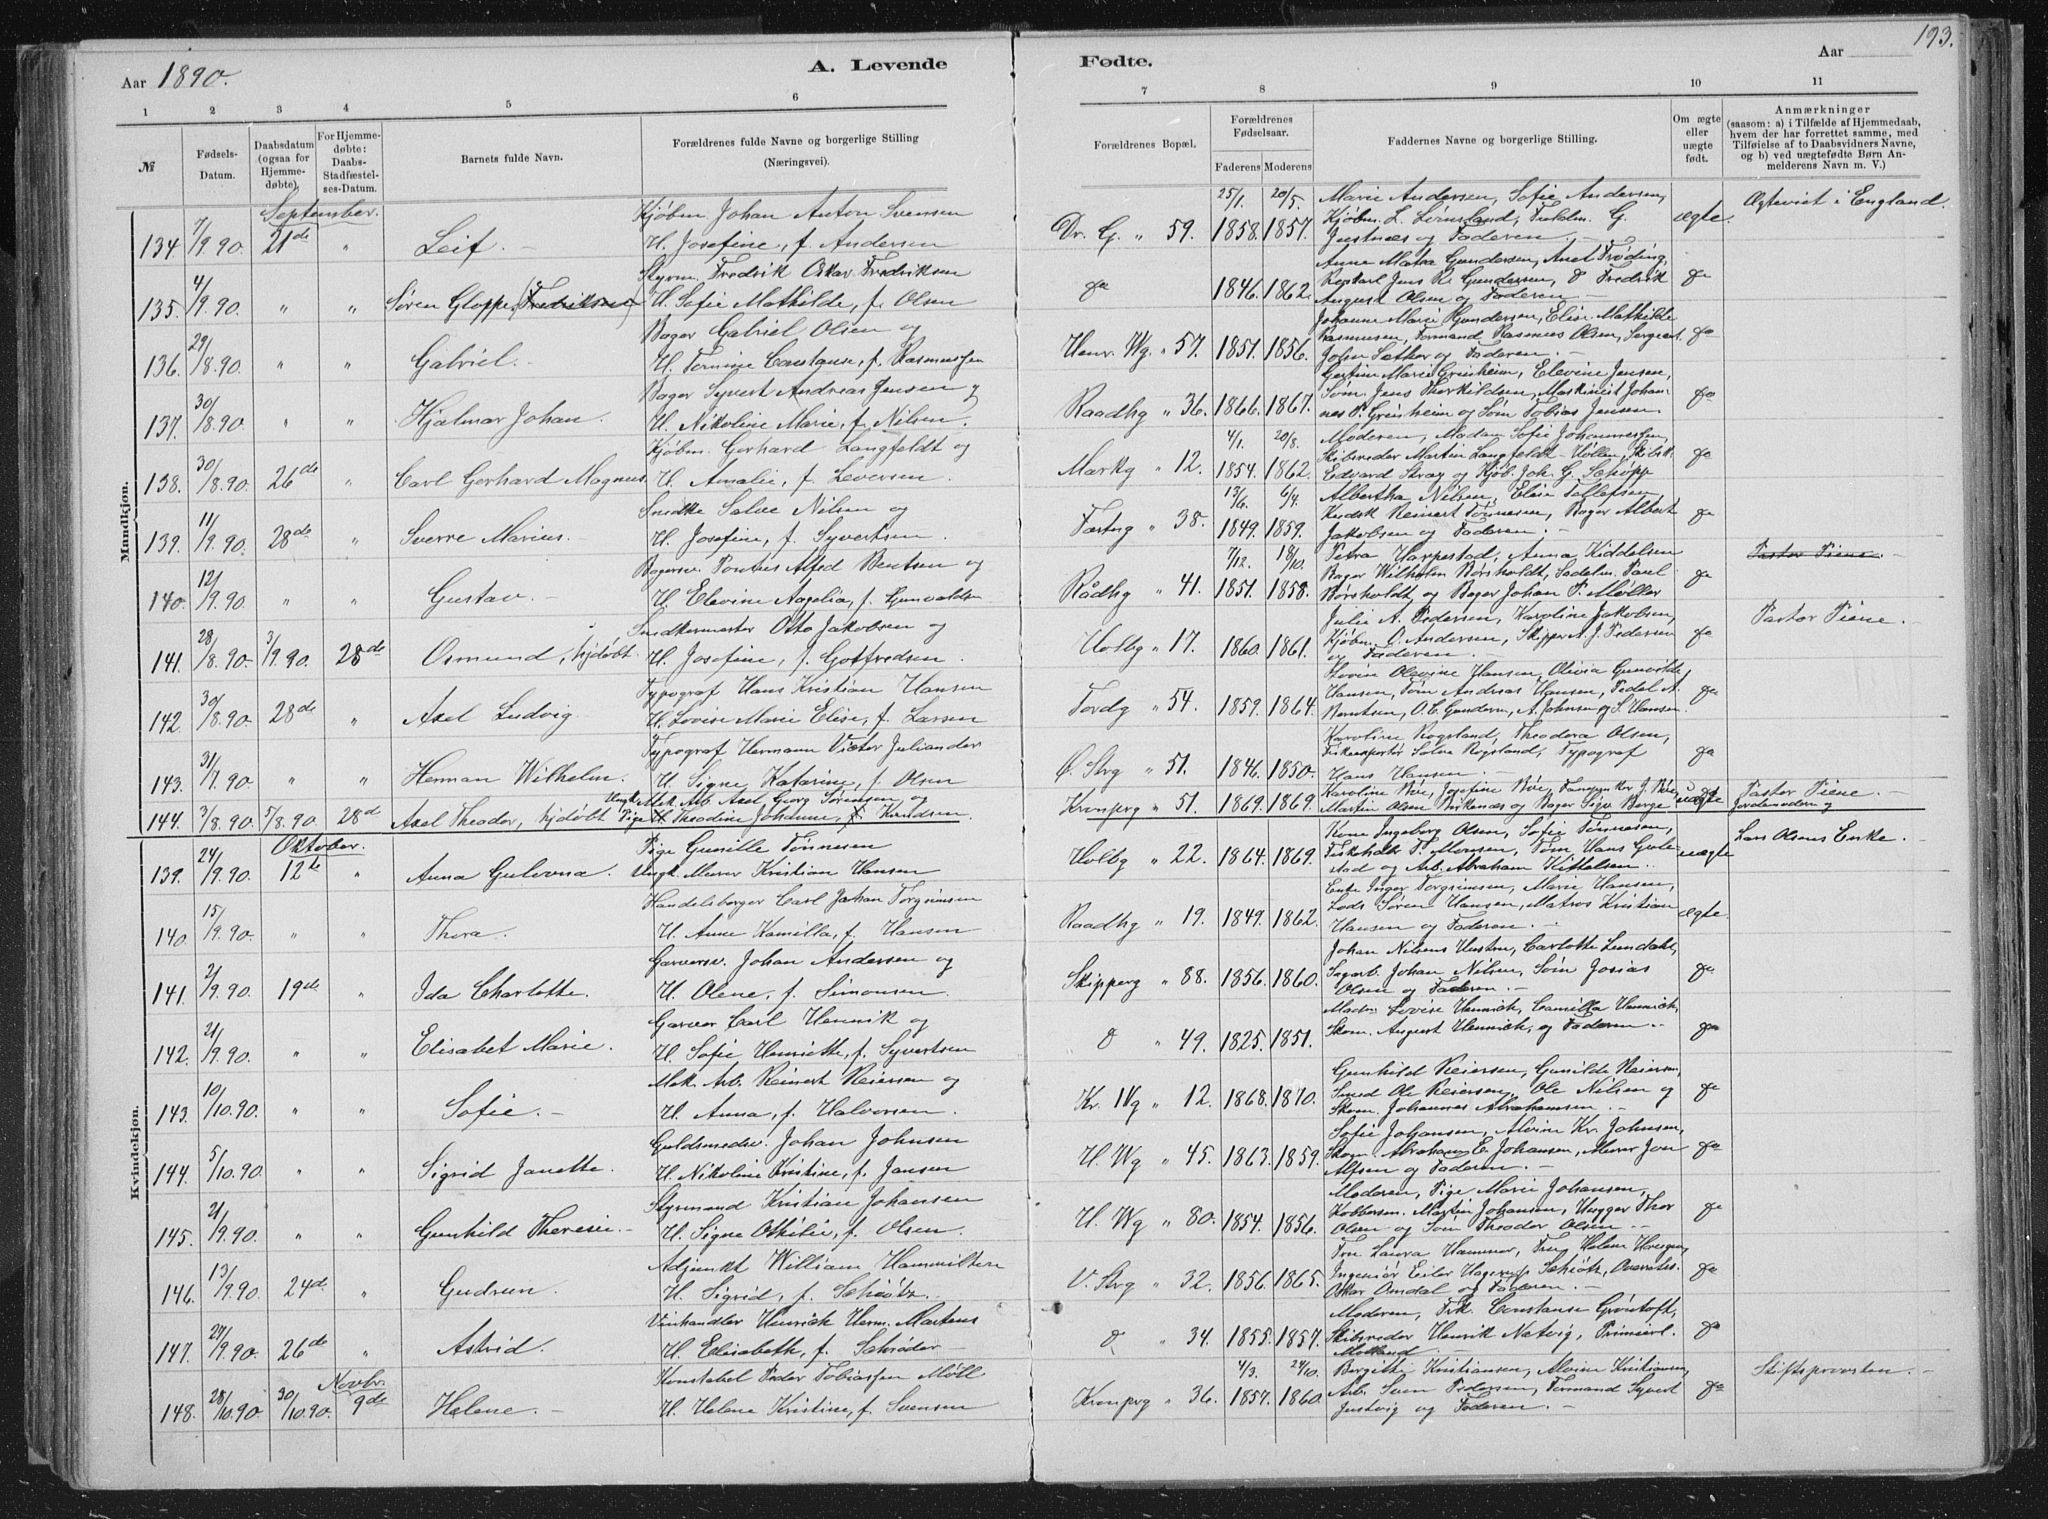 193.
Aar 1890. A. Levende Fødte. Aar
1 2 3 4 5 6 7 8 9 10 11
№
Fødsels-Datum.
Daabsdatum (ogsaa for Hjemmedøbte)
For Hjemmedøbte: Daabs-Stadfæstelses-Datum.
Barnets fulde Navn.
Forældrenes fulde Navne og borgerlige Stilling (Næringsvei).
Forældrenes Bopæl.
Forældrenes Fødselsaar.
Faderens Moderens
Faddernes Navne og borgerlige Stilling.
Om ægte eller uægte født.
Anmærkninger (saasom: a) i Tilfælde af Hjemmedaab, hvem der har forrettet samme, med Tilføielse af to Daabsvidners Navne, og b) ved uægtefødte Børn Anmelderens Navn m. V.)
Mandkjøn.
September.
Kjøbm. Johan Anton Svensen 25/1. 20/5. Marie Andersen, Sofie Andersen, Ægteviet i England.
134. 7/9.90. 21de " Leif. H. Josefine, f. Andersen Dr. G. " 59. 1858. 1857. Justnæs og Faderen ægte.
Styrm. Fredrik Oskar Fredriksen
135. 4/9.90. " " Søren Gloppe (Fredriksen) H. Sofie Mathilde, f. Olsen do 1846. 1862. August Olsen og Faderen do
Bager Gabriel Olsen og
136. 29/8.90. " " Gabriel. H. Tomine Constanse, f. Rasmussen Henr. Wg. " 57. 1851. 1856. John Sæther og Faderen. do
Bager Syvert Andreas Jensen og
137. 30/8.90. " " Hjalmar Johan. H. Nikoline Marie, f. Nilsen. Raadhg " 36. 1866. 1867. Søm. Jens Therkildsen, Maskinist Johannes P. Grinsheim og Søm Tobias Jensen. do
Kjøbm. Gerhard Langfeldt og 4/1. 20/8. Moderen, Madam Sofie Johannessen,
138. 30/8.90. 26de " Carl Gerhard Magnus. H. Amalie, f. Leversen. Markg " 12. 1854. 1862. Edvard Stray og Kjøb. Joh. G. Schöpp do
Snedker Salve Nilsen og 13/6. 6/4. Albertha Nilsen, Elise Tellefsen
139. 11/9.90. 28de " Sverre Marius. H. Josefine, f. Syvertsen. Fæstng " 38. 1849. 1859. Kudsk Reinert Tønnesen, Bager Albert Jakobsen og Faderen. do
Bagersv. Pontus Alfred Bentsen og 7/12. 18/10. Petra Harpestad, Anna Kiddelsen Pastor Piene.
140. 12/9.90. " " Gustav. H. Elevine Aagelia, f. Gunvaldsen Rådhg " 41. 1851. 1858. Børsholdt og Bager Johan P. Møller do
Snedkermester Otto Jakobsen og Julie A. Pedersen, Karoline Jakobsen, Pastor Piene.
141. 28/8.90. 3/9.90. 28de Osmund, hjdøbt H. Josefine, f. Gotfredsen. Holbg " 17. 1860. 1861. Kjøbm. O. Andersen, Skipper A. J. Pedersen og Faderen. do
Typograf Hans Kristian Hansen
142. 30/8.90. 28de " Axel Ludvig H. Lovise Marie Elise, f. Larsen Tordg " 54. 1859. 1864. Hansen, Tøm Andreas Hansen, do
Typograf Hermann Victor Juliander Karoline Rogsland, Theodora Olsen,
143. 31/7.90. " " Herman Wilhelm. H. Signe Katarine, f. Olsen Ø. Strg " 51. 1846. 1850. Salve Rogsland, Typograf Hans Hansen. do
Ungk. Mek. Arb. Axel Georg Sørensen og
144. 3/8.90. 5/8.90. 28d Axel Theodor, hjdøbt Pige Theodine Johanne, f. Knudsen. Kronprg " 51. 1869. 1869. Martin Olsen Birkenæs og Bager Sigv. Berge uægte Pastor Piene. Jordemoderen og
Kvindekjøn.
Oktober.
Pige Gunille Tønnesen Kone Ingeborg Olsen, Sofie Tønnesen, Lars Olsens Enke.
139. 24/9.90. 12te " Anna Gulovna. Ungk. Murer Kristian Hansen Holbg " 22. 1864. 1869. og Arb. Abraham Kittelsen. uægte
Handelsborger Carl Johan Torgrimsen Enke Inger Torgrimsen, Marie Hansen,
140. 15/9.90. " " Thora. H. Anne Kamilla, f. Hansen Raadhg " 19. 1849. 1862. Lods Søren Hansen, Matros Kristian Hansen og Faderen. ægte.
Garversv. Johan Andersen og Johan Nilsens Hustru, Carlotte Lundahl,
141. 2/9.90. 19de " Ida Charlotte. H. Olene, f. Simonsen. Skipperg " 88. 1856. 1860. Sagarb. Johan Nilsen, Søm Josias Olsen og Faderen. do
Garver Carl Hennik og Madm. Lovise Hennich, Camilla Hennich,
142. 21/9.90. " " Elisabet Marie. H. Sofie Henriette, f. Syvertsen do " 49. 1825. 1851. Skom. August Hennich, og Faderen. do
Mek. Arb. Reinert Reiersen og Gunhild Reiersen, Gunilde Reiersen,
143. 10/10.90. " " Sofie. H. Anna, f. Halvorsen. Kr. Wg " 12. 1868. 1870. Smed Ole Reiersen, Ole Nilsen og Skom. Johannes Abrahamsen. do
Guldsmedsv. Johan Johnsen Sofie Johansen, Alvine Kr. Johnsen,
144. 5/10.90. " " Sigrid Janette. H. Nikoline Kristine, f. Jansen H. Wg " 45. 1863. 1859. Skom. Abraham E. Johansen, Murer Jon Alfsen og Faderen. do
Styrmand Kristian Johansen Moderen, Pige Marie Johansen,
145. 21/9.90. " " Gunhild Theresie. H. Signe Othilie, f. Olsen. H. Wg " 80. 1854. 1856. Kobbersm. Martin Johansen, Thor Olsen og Søm Theodor Olsen. do
Adjunkt William Hammilton Fru Laura Hammer, Fru Helene
146. 13/9.90. 24de " Gudrun. H. Sigrid, f. Schiøtz. V. Strg " 32. 1856. 1865. Ingeniør Eiler Hagerup Schiøtz, Oskar Omdal og Faderen. do
Vinhandler Henrich Herm. Martens Moderen, Frk. Constanse Grøntoft,
147. 27/9.90. 26de " Astrid. H. Elisabeth, f. Schrøder do " 34. 1855. 1857. Skibsreder Henrik Natvig, Primierl. Motland do
Novbr.
Konstabel Peder Tobiassen Møll 4/3. 24/10. Bergitte Kristiansen, Alvine Kristiansen, Stiftsprovsten.
148. 28/10.90. 30/10.90. 9de Helene. H. Helene Kristine, f. Svensen Kronprg " 36. 1857. 1860. Arb. Sven Pedersen, Formand Syvert Justvig og Faderen. do